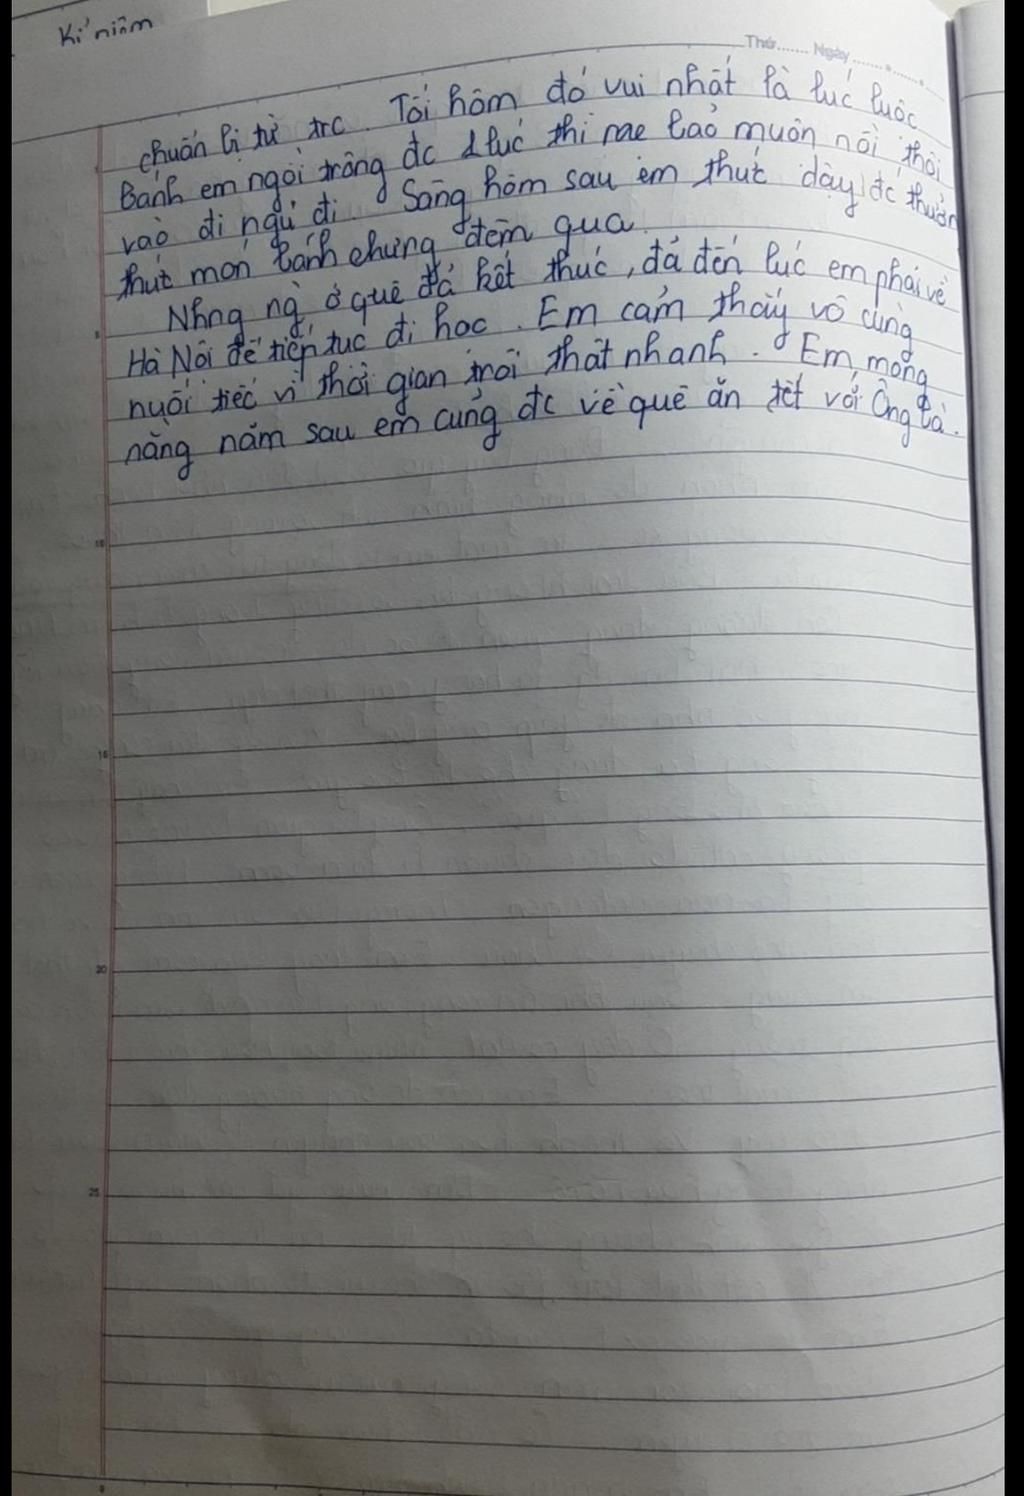 Kỉ niệm
Thứ....... Ngày ..................
chuẩn bị từ trc. Tối hôm đó vui nhất là lúc luộc
Bánh em ngồi trông đc 1 lúc thì mẹ bảo muộn rồi thôi
vào đi ngủ đi. Sáng hôm sau em thức dậy đc thưởn
thức món bánh chưng đêm qua.
Nhng ng ở quê đã kết thúc, đã đến lúc em phải về
Hà Nội để tiếp tục đi học. Em cảm thấy vô cùng
nuối tiếc vì thời gian trôi thật nhanh. Em mong
rằng năm sau em cũng đc về quê ăn tết với Ông bà.
5
10
15
20
25